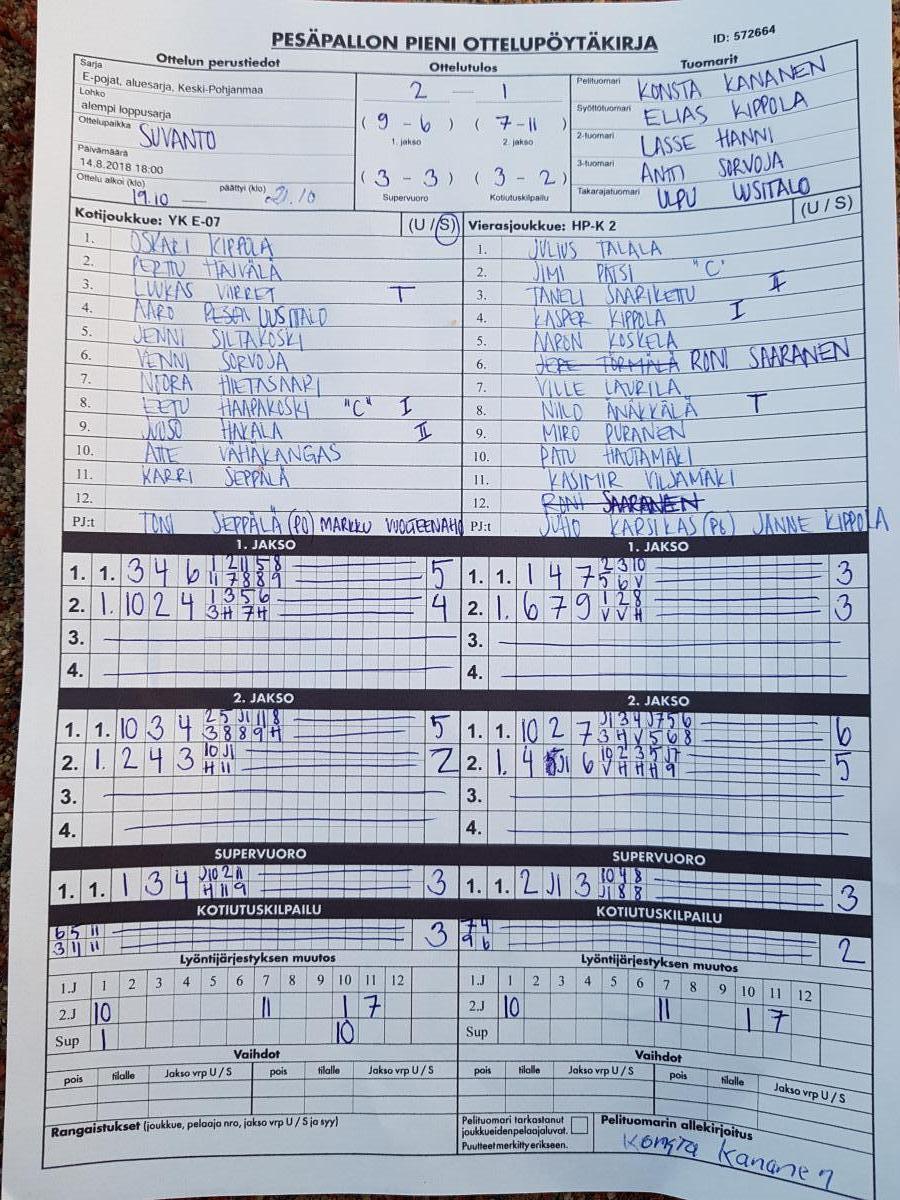 PESÄPALLON PIENI OTTELUPÖYTÄKIRJA
ID: 572664
Ottelun perustiedot
Sarja
E-pojat, aluesarja, Keski-Pohjanmaa
Lohko
alempi loppusarja
Ottelupaikka SUVANTO
Päivämäärä
14.8.2018 18:00
Ottelu alkoi (klo) 19.10 päättyi (klo) 21.10
Ottelutulos
2 — 1
(9 - 6) (7 - 11)
1. jakso 2. jakso
(3 - 3) (3 - 2)
Supervuoro Kotiutuskilpailu
Tuomarit
Pelituomari KONSTA KANANEN
Syöttötuomari ELIAS KIPPOLA
2-tuomari LASSE HANNI
3-tuomari ANTI SORVOJA
Takarajatuomari ULPU UUSITALO
Kotijoukkue: YK E-07 (U / S)
1. OSKARI KIPPOLA
2. PERTTU HAIVÄLÄ
3. LUUKAS VIRRET T
4. AARO UUSITALO
5. JENNI SILTAKOSKI
6. VENNI SORVOJA
7. NOORA HIETASAARI
8. EETU HAAPAKOSKI "C" I
9. JUUSO HAKALA II
10. ATTE VÄHÄKANGAS
11. KARRI SEPPÄLÄ
12.
PJ:t TONI SEPPÄLÄ (PO) MARKKU VUOLTEENAHO
Vierasjoukkue: HP-K 2 (U / S)
1. JULIUS TALALA
2. JIMI PATSI "C"
3. TANELI SAARIKETTU II
4. KASPER KIPPOLA I
5. AARON KOSKELA
6. JERE TÖRMÄLÄ RONI SAARANEN
7. VILLE LAURILA
8. NIILO ÄNÄKKÄLÄ T
9. MIRO PURANEN
10. PATU HAUTAMÄKI
11. KASIMIR VILJAMÄKI
12. RONI SAARANEN
PJ:t JUHO KARSIKAS (P6) JANNE KIPPOLA
1. JAKSO
1. 1. 3 4 6 1 2 11 5 8 5
11 7 8 8 9
2. 1. 10 2 4 1 3 5 6 4
3 H 7 H
3.
4.
1. JAKSO
1. 1. 1 4 7 2 3 10 3
5 6 V
2. 1. 6 7 9 1 2 8 3
V V H
3.
4.
2. JAKSO
1. 1. 10 3 4 2 5 J1 11 8 5
3 8 8 9 H
2. 1. 2 4 3 10 J1 2
H 11
3.
4.
2. JAKSO
1. 1. 10 2 7 J1 3 4 J7 5 6 6
3 H V 5 6 8
2. 1. 4 J1 6 10 2 3 5 J7 5
V H H H 9
3.
4.
SUPERVUORO
1. 1. 1 3 4 J10 2 11 3
H 11 9
SUPERVUORO
1. 1. 2 J1 3 10 4 8 3
J1 8 8
KOTIUTUSKILPAILU
6 5 11 3
3 11 11
KOTIUTUSKILPAILU
7 4 2
9 6
Lyöntijärjestyksen muutos
1.J 1 2 3 4 5 6 7 8 9 10 11 12
2.J 10 11 1 7
Sup 1 10
Lyöntijärjestyksen muutos
1.J 1 2 3 4 5 6 7 8 9 10 11 12
2.J 10 11 1 7
Sup
Vaihdot
pois tilalle Jakso vrp U / S pois tilalle Jakso vrp U / S
Vaihdot
pois tilalle Jakso vrp U / S pois tilalle Jakso vrp U / S
Rangaistukset (joukkue, pelaaja nro, jakso vrp U / S ja syy)
Pelituomari tarkastanut
joukkueidenpelaajaluvat.
Puutteet merkitty erikseen.
Pelituomarin allekirjoitus
Konsta Kananen